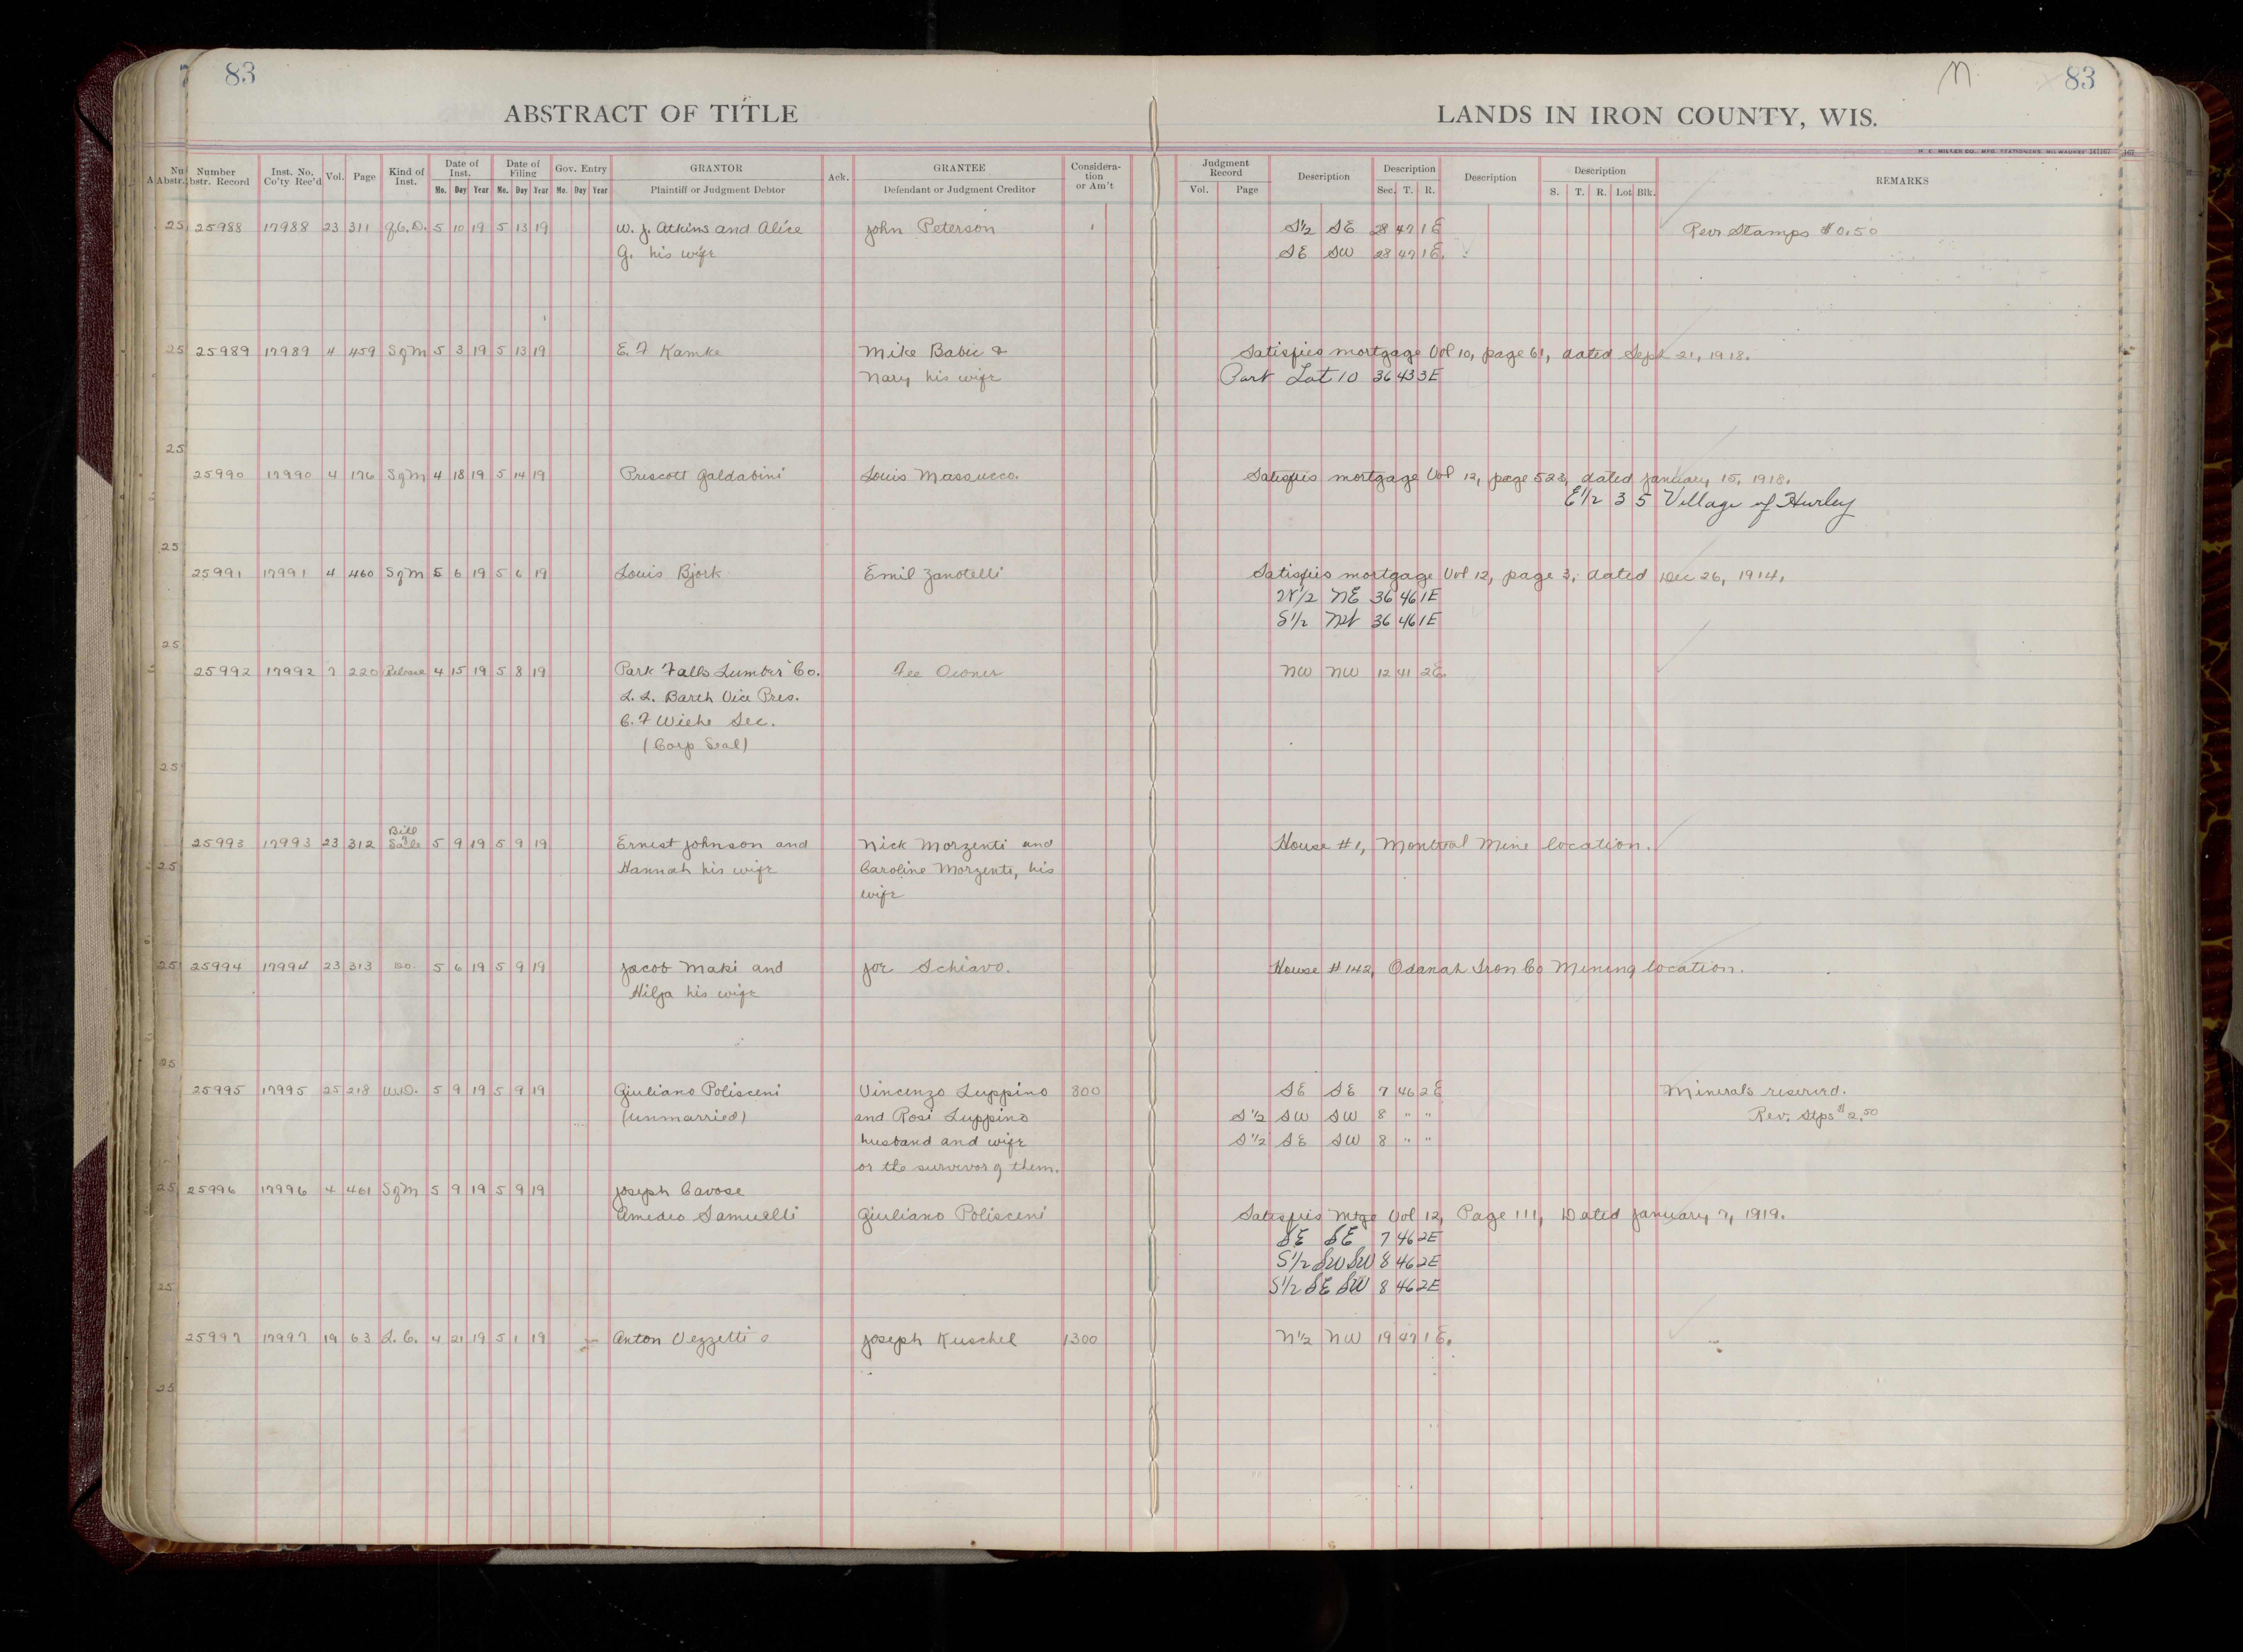 83
N
83
ABSTRACT OF TITLE
LANDS IN IRON COUNTY, WIS.
H. C. MILLER CO., MFG. STATIONERS, MILWAUKEE
Number Abstr. Record | Inst. No. Co'ty Rec'd | Vol. | Page | Kind of Inst. | Date of Inst. Mo. Day Year | Date of Filing Mo. Day Year | Gov. Entry Mo. Day Year | GRANTOR Plaintiff or Judgment Debtor | Ack. | GRANTEE Defendant or Judgment Creditor | Considera-tion or Am't | Judgment Record Vol. Page | Description | Description Sec. T. R. | Description | Description S. T. R. Lot Blk. | REMARKS
25988 17988 23 311 Q.C.D. 5 10 19 5 13 19 W. J. Atkins and Alice John Peterson 1 S½ SE 28 47 1 E Rev Stamps $0.50
G. his wife SE SW 28 47 1 E.
25989 17989 4 459 S of M 5 3 19 5 13 19 E. F Kamke Mike Babic & Satisfies mortgage Vol 10, page 61, dated Sept 21, 1918.
Nary his wife Part Lot 10 36 43 3E
25990 17990 4 176 S of M 4 18 19 5 14 19 Prescott Galdabini Louis Massucco. Satisfies mortgage Vol 12, page 523, dated January 15, 1918.
E½ 3 5 Village of Hurley
25991 17991 4 460 S of M 5 6 19 5 6 19 Louis Bjork Emil Zanotelli Satisfies mortgage Vol 12, page 3, dated Dec 26, 1914.
N½ NE 36 46 1E
S½ NW 36 46 1E
25992 17992 7 220 Release 4 15 19 5 8 19 Park Falls Lumber Co. Fee Owner NW NW 12 41 2E.
L. L. Barth Vice Pres.
C. F Wiehe Sec.
(Corp Seal)
25993 17993 23 312 Bill of Sale 5 9 19 5 9 19 Ernest Johnson and Nick Morzenti and House #1, Montreal Mine location.
Hannah his wife Caroline Morzenti, his
wife
25994 17994 23 313 Do. 5 6 19 5 9 19 Jacob Maki and Joe Schiavo. House #142, Odanah Iron Co Mining location.
Hilja his wife
25995 17995 25 218 W.D. 5 9 19 5 9 19 Giuliano Polisceni Vincenzo Luppino 800 SE SE 7 46 2 E Minerals reserved.
(unmarried) and Rosi Luppino S½ SW SW 8 " " Rev. Stps $2.50
husband and wife S½ SE SW 8 " "
or the survivor of them.
25996 17996 4 461 S of M 5 9 19 5 9 19 Joseph Cavose
Amedeo Samuelli Giuliano Polisceni Satisfies Mtge Vol 12, Page 111, Dated January 7, 1919.
SE SE 7 46 2E
S½ SW SW 8 46 2E
S½ SE SW 8 46 2E
25997 17997 19 63 L. C. 4 21 19 5 1 19 Anton Vezzetti Joseph Kuschel 1300 N½ NW 19 47 1 E.